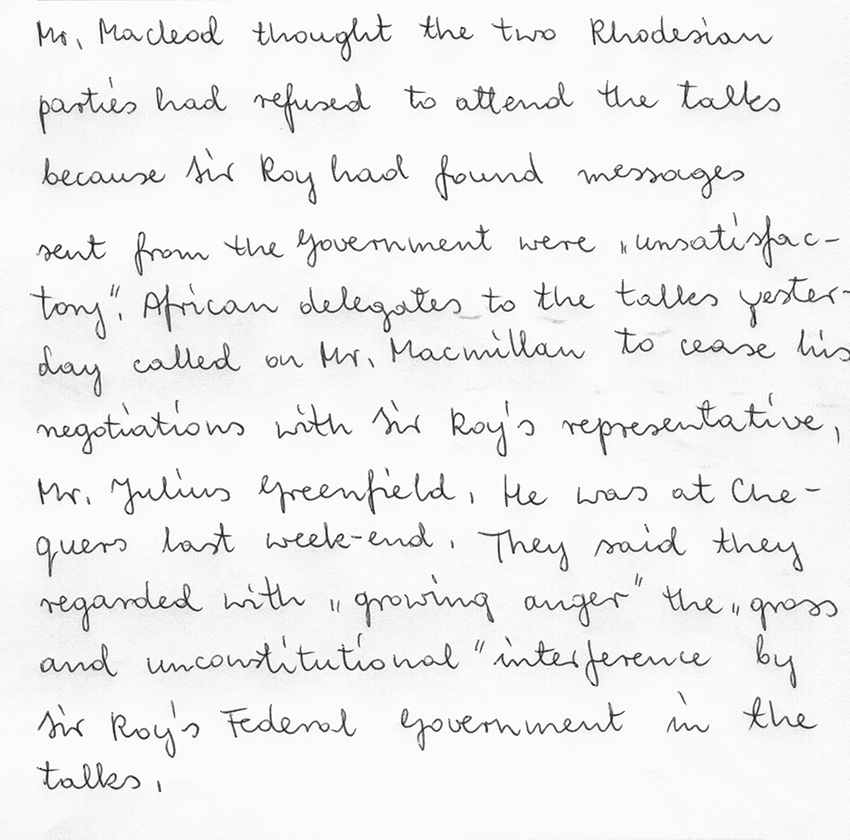 Mr. Macleod thought the two Rhodesian
parties had refused to attend the talks
because Sir Roy had found messages
sent from the Government were „unsatisfac-
tory“. African delegates to the talks yester-
day called on Mr. Macmillan to cease his
negotiations with Sir Roy's representative,
Mr. Julius Greenfield. He was at Che-
quers last week-end. They said they
regarded with „growing anger“ the „gross
and unconstitutional“ interference by
Sir Roy's Federal Government in the
talks.